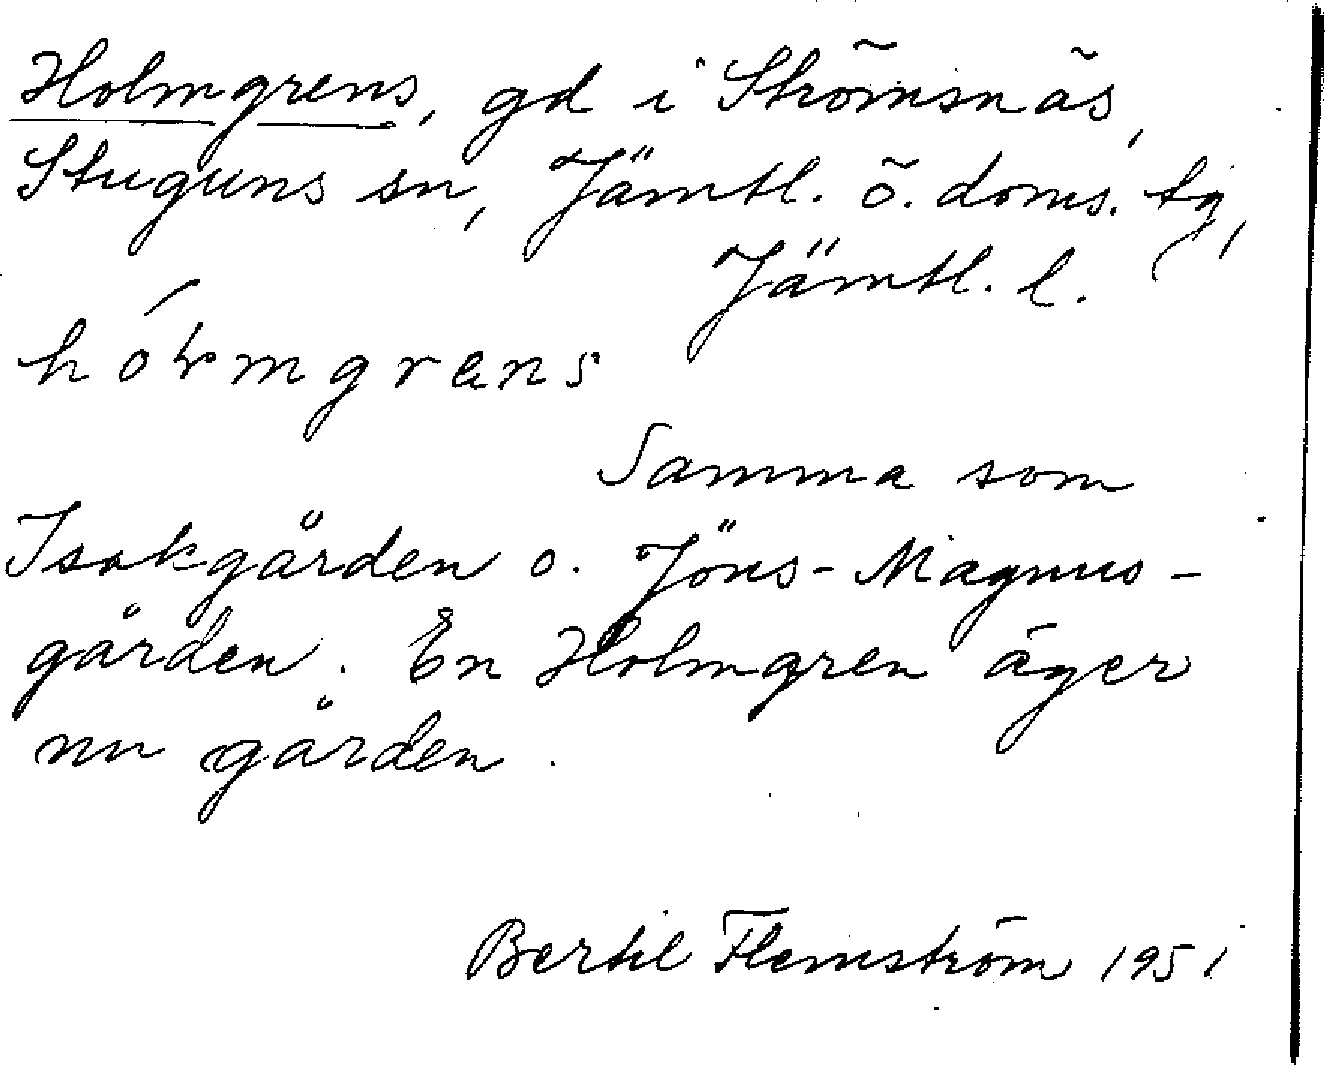 Holmgrens, gd i Strömsnäs,
Stuguns sn, Jämtl. ö. doms. tg,
Jämtl. l.
hó̀ɫmgrens
Samma som
Isakgården o. Jöns-Magnus-
gården. En Holmgren äger
nu gården.
Bertil Flemström 1951